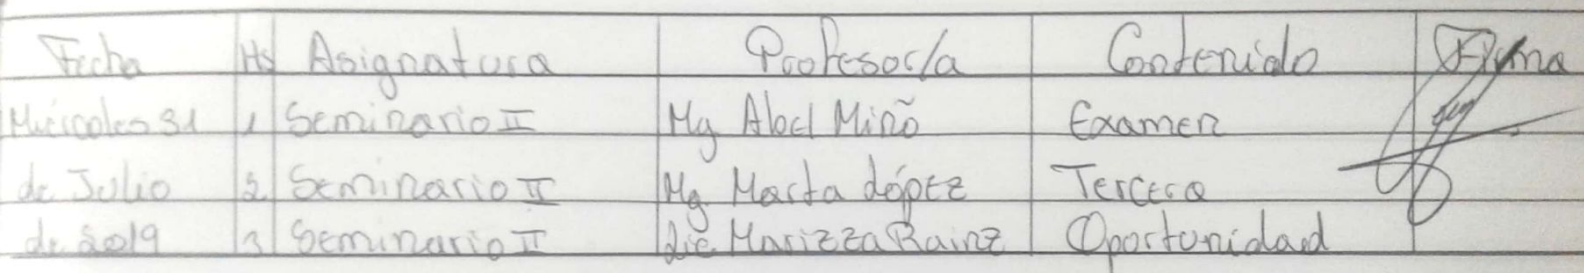 Fecha Hs Asignatura Profesor/a Contenido Firma
Miércoles 31 1 Seminario II Mg Abel Miño Examen
de Julio 2 Seminario II Mg Marta López Tercera
de 2019 3 Seminario II Lic. Marizza Rainz Oportunidad